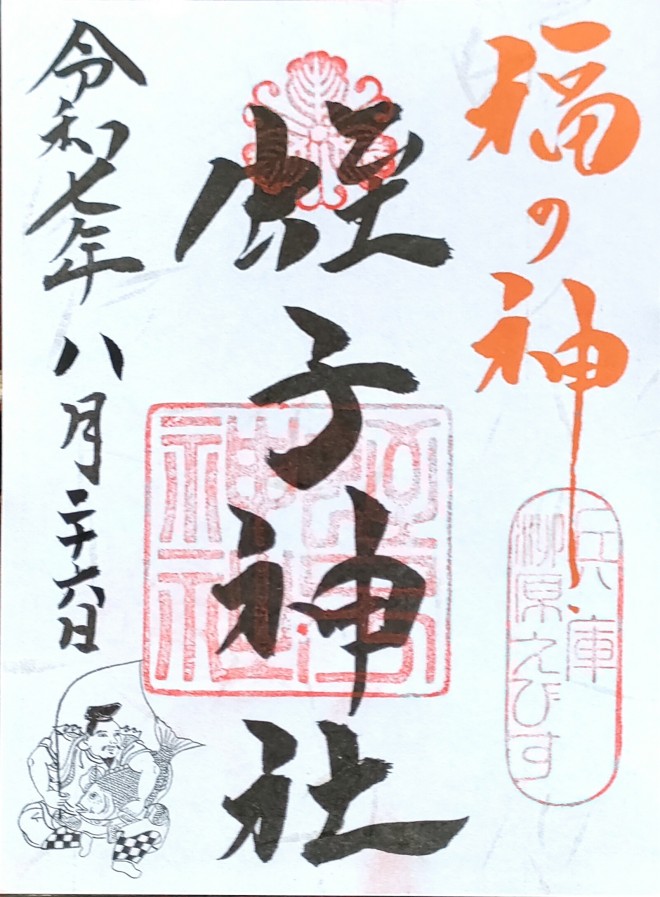 福の神
兵庫
柳原えびす
蛭子神社
蛭子
神社
令和七年八月二十六日